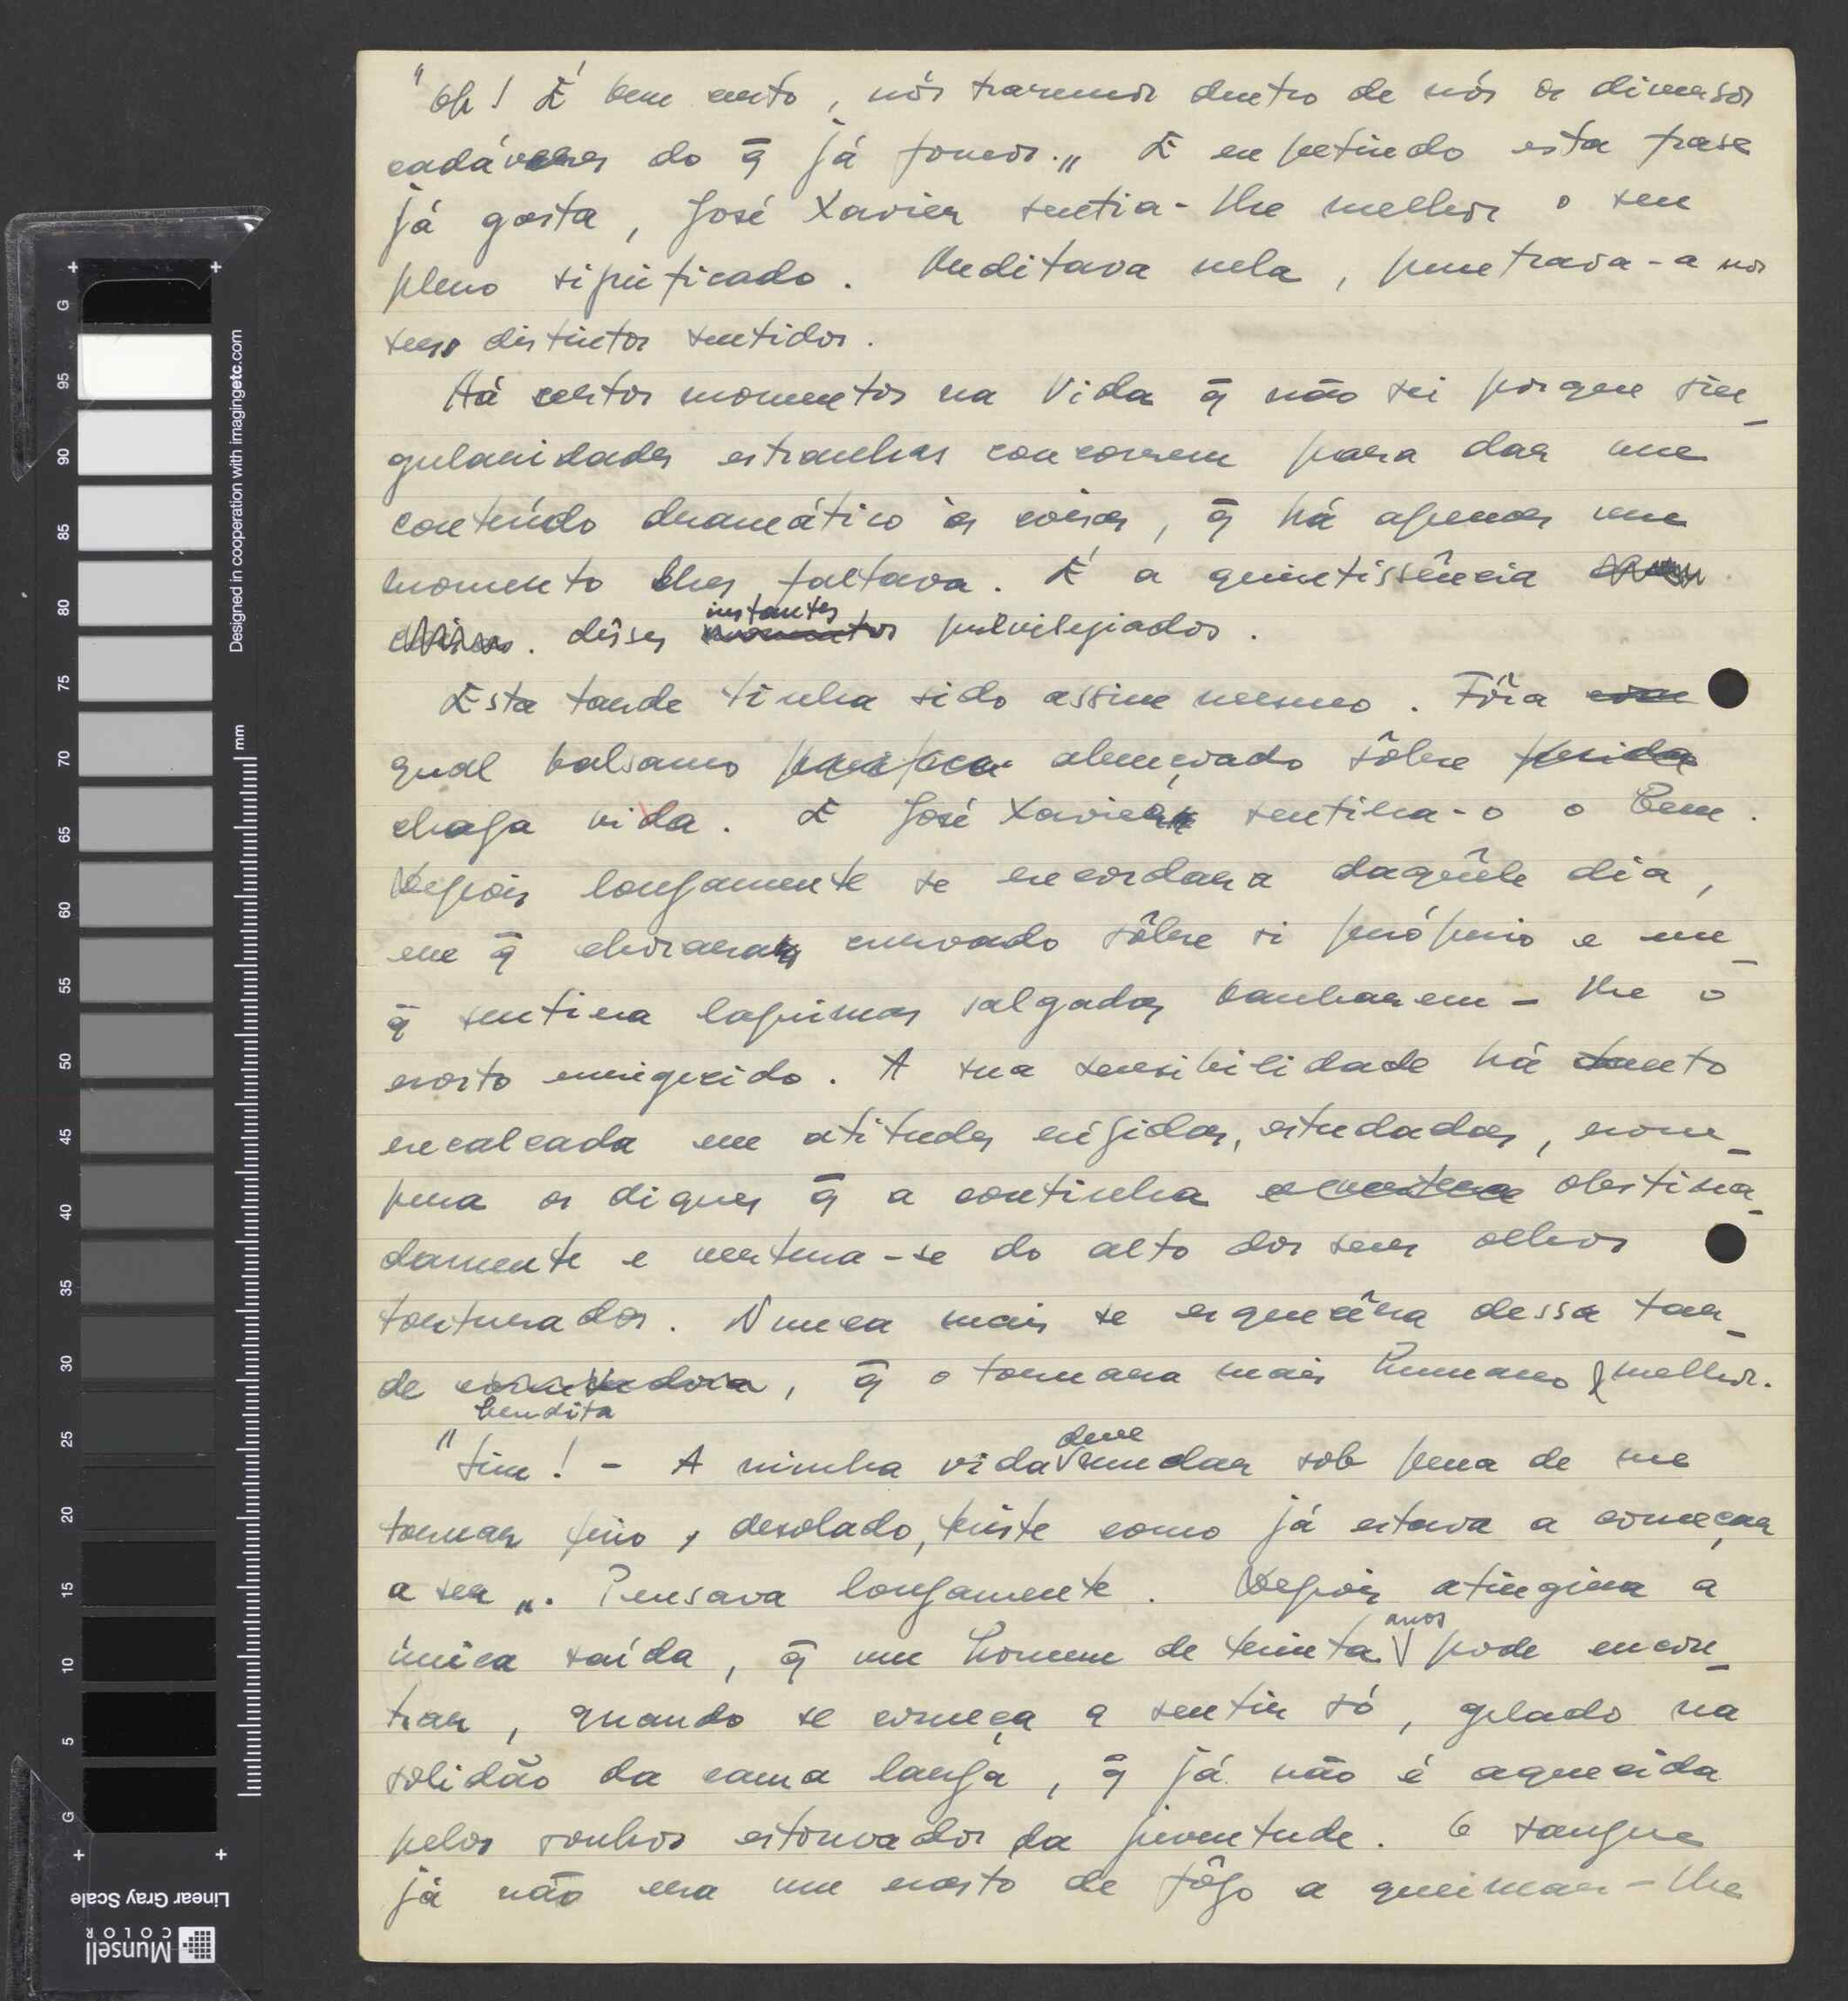 "Oh! É bem certo, nós trazemos dentro de nós os diversos
cadáveres do q̄ já fomos." E repetindo esta frase
já gasta, José Xavier sentia-lhe melhor o seu
pleno significado. Meditava nela, penetrava-a nos
seus distintos sentidos.
Há certos momentos na Vida q̄ não sei porque sin_
gularidades estranhas concorrem para dar um
conteúdo dramático às coisas, q̄ há apenas um
momento lhes faltava. É a quintissência
dêsses momentos instantes privilegiados.
Esta tarde tinha sido assim mesmo. Fôra com
qual balsamo abençoado sôbre ferida
chaga vida. E José Xavier sentira-o o Bem.
Depois longamente se recordara daquêle dia,
em q̄ chorara curvado sôbre si próprio e em_
q̄ sentira lagrimas salgadas banharem-lhe o
rosto enrigecido. A sua sensibilidade há tanto
recalcada em atitudes rígidas, estudadas, rom_
pera os diques q̄ a continha obstina_
damente e vertera-se do alto dos seus olhos
torturados. Nunca mais se esquecêra dessa tar_
de bendita, q̄ o tornara mais humano e melhor.
"Sim! - A minha vida deve mudar sob pena de me
tornar frio, desolado, triste como já estava a começar
a ser". Pensava longamente. Depois atingira a
única saída, q̄ um homem de trinta anos pode encon_
trar, quando se começa a sentir só, gelado na
solidão da cama larga, q̄ já não é aquecida
pelos sonhos estouvados da juventude. O sangue
já não era um rasto de fôgo a queimar-lhe
Designed in cooperation with imagingetc.com
mm
G
95
90
85
80
75
70
65
60
55
50
45
40
35
30
25
20
15
10
5
G
Linear Gray Scale
Munsell
COLOR